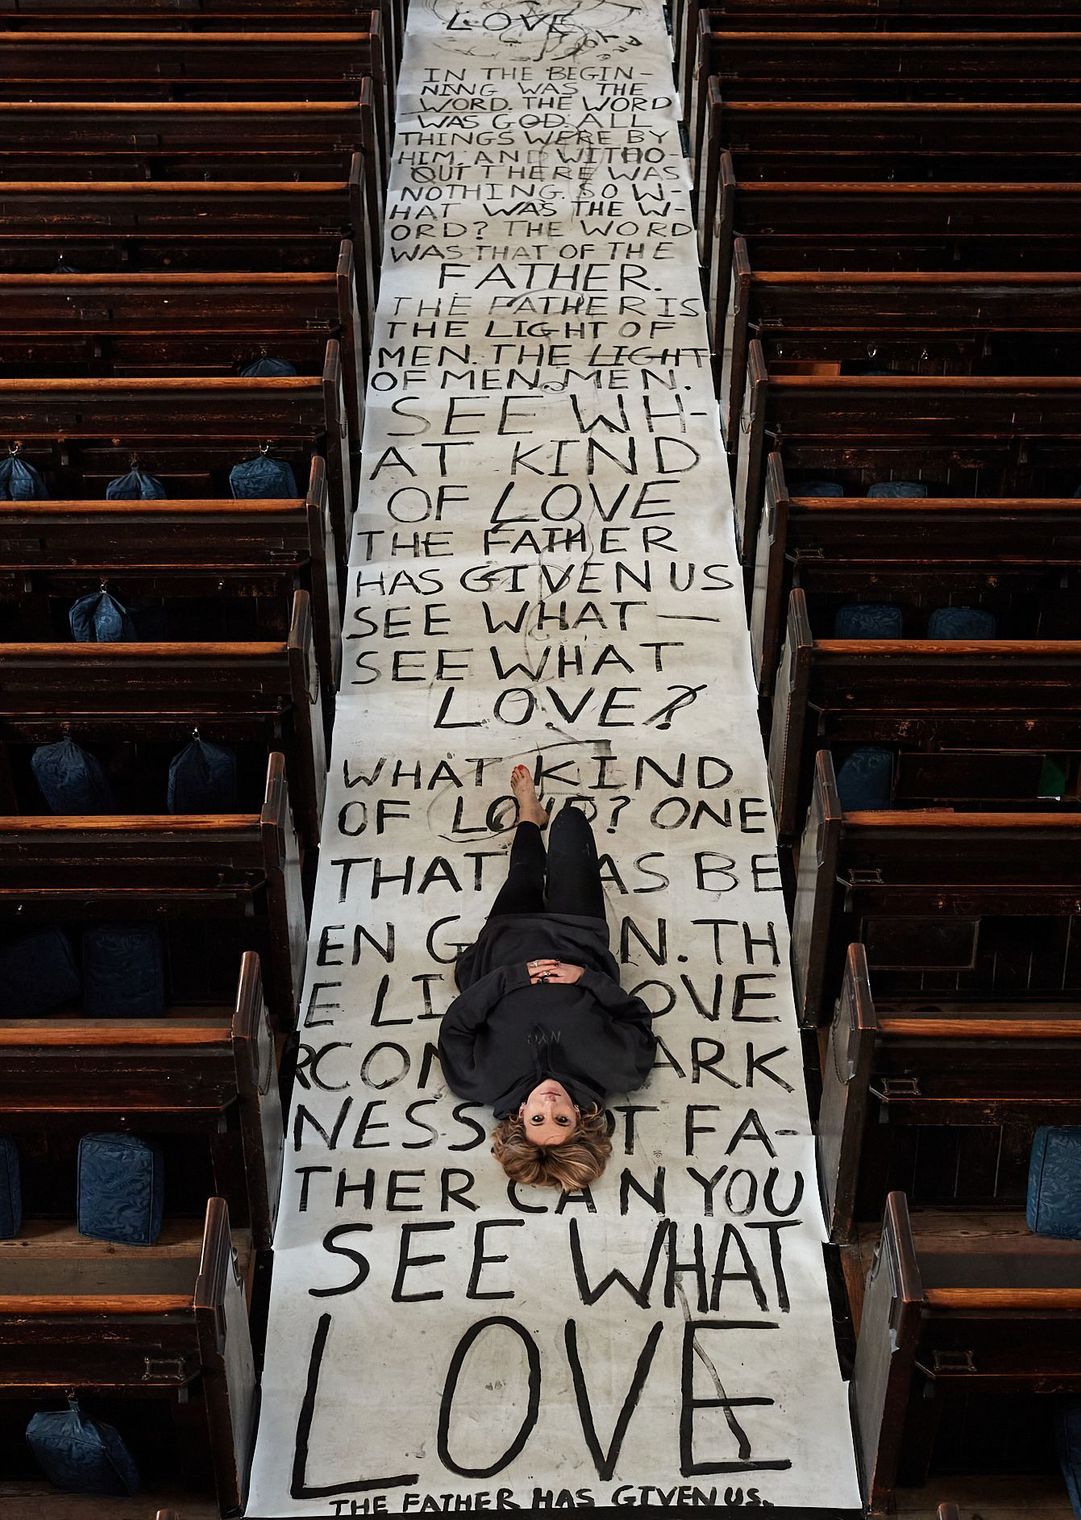 LOVE
IN THE BEGIN-
NING WAS THE
WORD. THE WORD
WAS GOD. ALL
THINGS WERE BY
HIM, AND WITHO-
OUT THERE WAS
NOTHING. SO W-
HAT WAS THE W-
ORD? THE WORD
WAS THAT OF THE
FATHER.
THE FATHER IS
THE LIGHT OF
MEN. THE LIGHT
OF MEN. MEN.
SEE WH-
AT KIND
OF LOVE
THE FATHER
HAS GIVEN US
SEE WHAT —
SEE WHAT
LOVE?
WHAT KIND
OF ? ONE
THAT AS BE
EN G N. TH
E LI OVE
RCOM ARK
NESS T FA-
THER CAN YOU
SEE WHAT
LOVE
THE FATHER HAS GIVEN US.